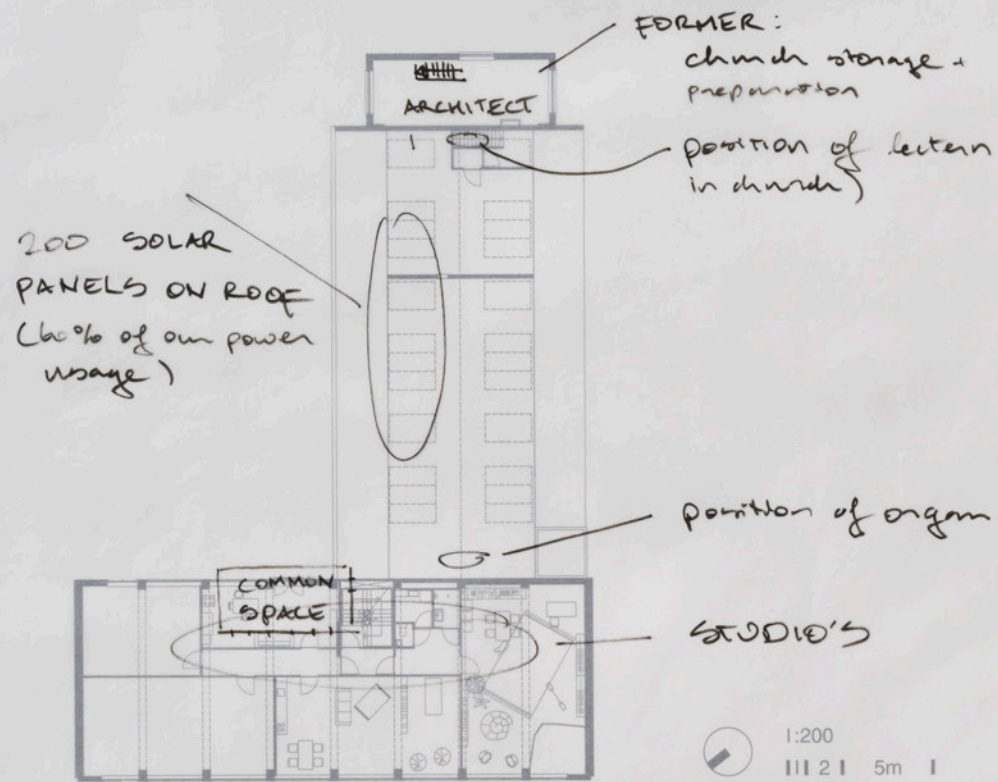 FORMER:
church storage +
preparation
ARCHITECT
position of lectern
in church)
200 SOLAR
PANELS ON ROOF
(60% of our power
usage)
position of organ
COMMON
SPACE
STUDIO'S
1:200
2 5m